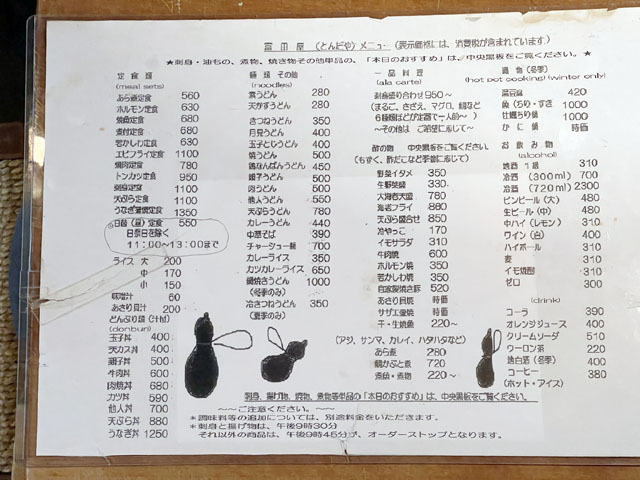 富田屋 (とんだや) メニュー (表示価格には、消費税が含まれています。)
★刺身・油もの、煮物、焼き物その他単品の、「本日のおすすめ」は、中央黒板をご覧ください。★
定食類
(meal sets)
あら煮定食 560
ホルモン定食 630
焼魚定食 680
煮付定食 680
若かしわ定食 630
エビフライ定食 1100
焼肉定食 780
トンカツ定食 950
刺身定食 1100
天ぷら定食 1100
うなぎ蒲焼定食 1350
日替(昼)定食 550
日祭日を除く
11:00~13:00まで
ライス 大 200
中 170
小 150
味噌汁 60
あさり貝汁 200
どんぶり類(汁付)
(donburi)
玉子丼 400
天カス丼 400
親子丼 500
牛肉丼 600
肉焼丼 680
カツ丼 590
他人丼 700
天ぷら丼 880
うなぎ丼 1250
麺類 その他
(noodles)
素うどん 280
天かすうどん 280
きつねうどん 350
月見うどん 400
玉子とじうどん 450
焼うどん 500
鶏なんばうどん 450
親子うどん 500
肉うどん 500
他人うどん 550
天ぷらうどん 780
カレーうどん 440
中華そば 390
チャーシュー麺 700
カレーライス 350
カツカレーライス 650
鍋焼きうどん 1000
(冬季のみ)
冷きつねうどん 350
(夏季のみ)
一品料理
(ala carte)
刺身盛り合わせ950~
(まるご、さざえ、マグロ、鯛など
6種類ほどが定番で一人前~)
~その他は ご希望に応じて~
酢の物 中央黒板をご覧ください
(もずく、酢だこなど季節に応じて)
野菜イタメ 350
生野菜 330
大海老天盛 780
海老フライ 880
天ぷら盛合せ 850
冷やっこ 170
イモサラダ 310
牛肉焼 600
ホルモン焼 350
若かしわ焼 350
自家製焼き豚 520
あさり貝焼 時価
サザエ壷焼 時価
干・生焼魚 220~
(アジ、サンマ、カレイ、ハタハタなど)
あら煮 280
鯛かぶと煮 720
煮魚・煮物 220~
鍋物(冬季)
(hot pot cooking)(winter only)
湯豆腐 420
魚(ちり・すき) 1000
牡蠣ちり鍋 1000
かに鍋 時価
お飲み物
(alcohol)
焼酒 1級 310
冷酒 (300ml) 700
冷酒 (720ml) 2300
ビンビール(大) 480
生ビール(中) 480
中ハイ(レモン) 310
ワイン(白) 400
ハイボール 310
麦 310
イモ焼酎 310
ゼロ 300
(drink)
コーラ 390
オレンジジュース 400
クリームソーダ 510
ウーロン茶 220
地白酒(冬季) 400
コーヒー 380
(ホット・アイス)
刺身、揚げ物、焼物、煮物等単品の「本日のおすすめ」は、中央黒板をご覧ください。
~~ご注意ください。~~
*調味料等の追加については、別途料金をいただきます。
*刺身と揚げ物は、午後9時30分
それ以外の商品は、午後9時45分で、オーダーストップとなります。